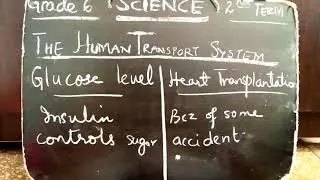 Grade 6 SCIENCE 2nd TERM
THE HUMAN TRANSPORT SYSTEM
Glucose level
Insulin
controls sugar
Heart Transplantation
Bcz of some
accident